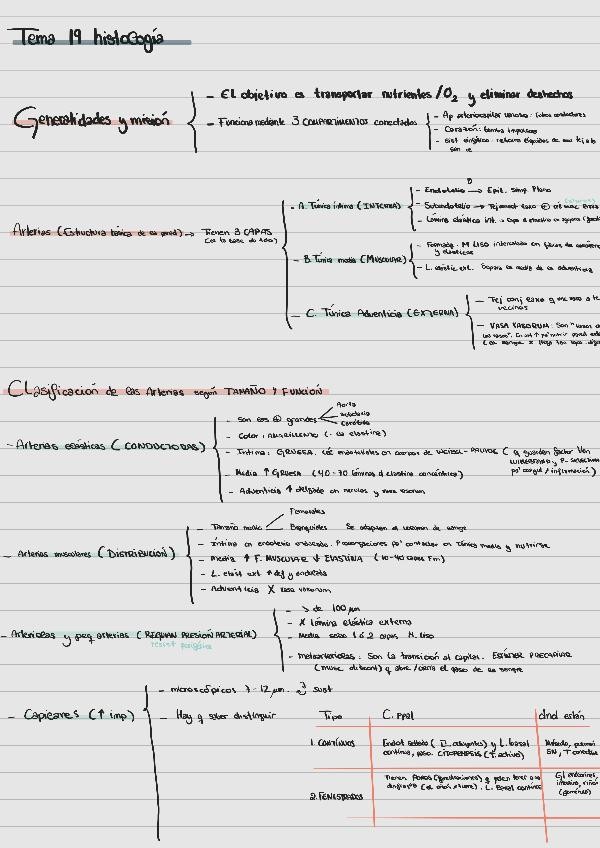 Tema 19 histología
Generalidades y misión
- El objetivo es transportar nutrientes/O₂ y eliminar deshechos
- Funciona mediante 3 COMPARTIMENTOS conectados
- Ap arteriocapilar venoso:
- Corazón: bomba impulsora
- Sist linfático: retorna líquidos de
Arterias (Estructura básica de la pared) → Tienen 3 CAPAS
- A. Túnica íntima (INTERNA)
- Endotelio → Epit. simp. Plano
- Subendotelio → Tej conect laxo
- Lámina elástica int. →
- B Túnica media (MUSCULAR)
- Formada. M LISO intercalado en
y elásticas
- L. elástic ext. Separa la media de la adventicia
- C. Túnica Adventicia (EXTERNA)
- Tej conj laxo q
vecinos
- VASA VASORUM: Son "vasos
Clasificación de las Arterias según TAMAÑO Y FUNCIÓN
- Arterias elásticas (CONDUCTORAS)
- Son las ⊕ grandes
Aorta
Subclavia
Carótida
- Color: AMARILLENTO (- la elastina)
- Íntima: GRUESA. Cél endoteliales en cuerpos de WEIBEL-PALADE (q guardan factor Von
WILLEBRAND y P-selectina
pa' coagul/inflamación)
- Media ↑ GRUESA (40-70 láminas d elastina concéntricas)
- Adventicia ↑ delgada en nervios y vasa vasorum
- Arterias musculares (DISTRIBUCIÓN)
- Tamaño medio
Femorales
Braquiales
Se adaptan al volumen de sangre
- Íntima en endotelio ondulado. Prolongaciones pa' contactar en Túnica media y nutrirse
- Media ↑ F. MUSCULAR ↓ ELASTINA (10-40 capas Fm)
- L. elást ext ↑ def y ondulada
- Adventicia X vasa vasorum
- Arteriolas y peq arterias (REGULAN PRESIÓN ARTERIAL)
resist periférica
- > de 100 µm
- X lámina elástica externa
- Media solo 1 ó 2 capas M. liso
- Metaarteriolas: Son la transición al capilar. ESFÍNTER PRECAPILAR
(musc discont) q abre/cierra el paso de la sangre
- Capilares (↑ imp)
- microscópicos 7-12 µm.
- Hay q saber distinguir
Tipo
C. ppal
dnd están
1. CONTINUOS
Endot sellado (U. ocluyentes) y L. basal
continua, paso. CITOPEMPSIS (T. activo)
Músculo,
SN, T conectivo
2. FENESTRADOS
Tienen POROS (fenestraciones) y pueden tener o no
diafragma L. Basal continua
Gl endocrinas,
intestino, riñón
(glomérulo)